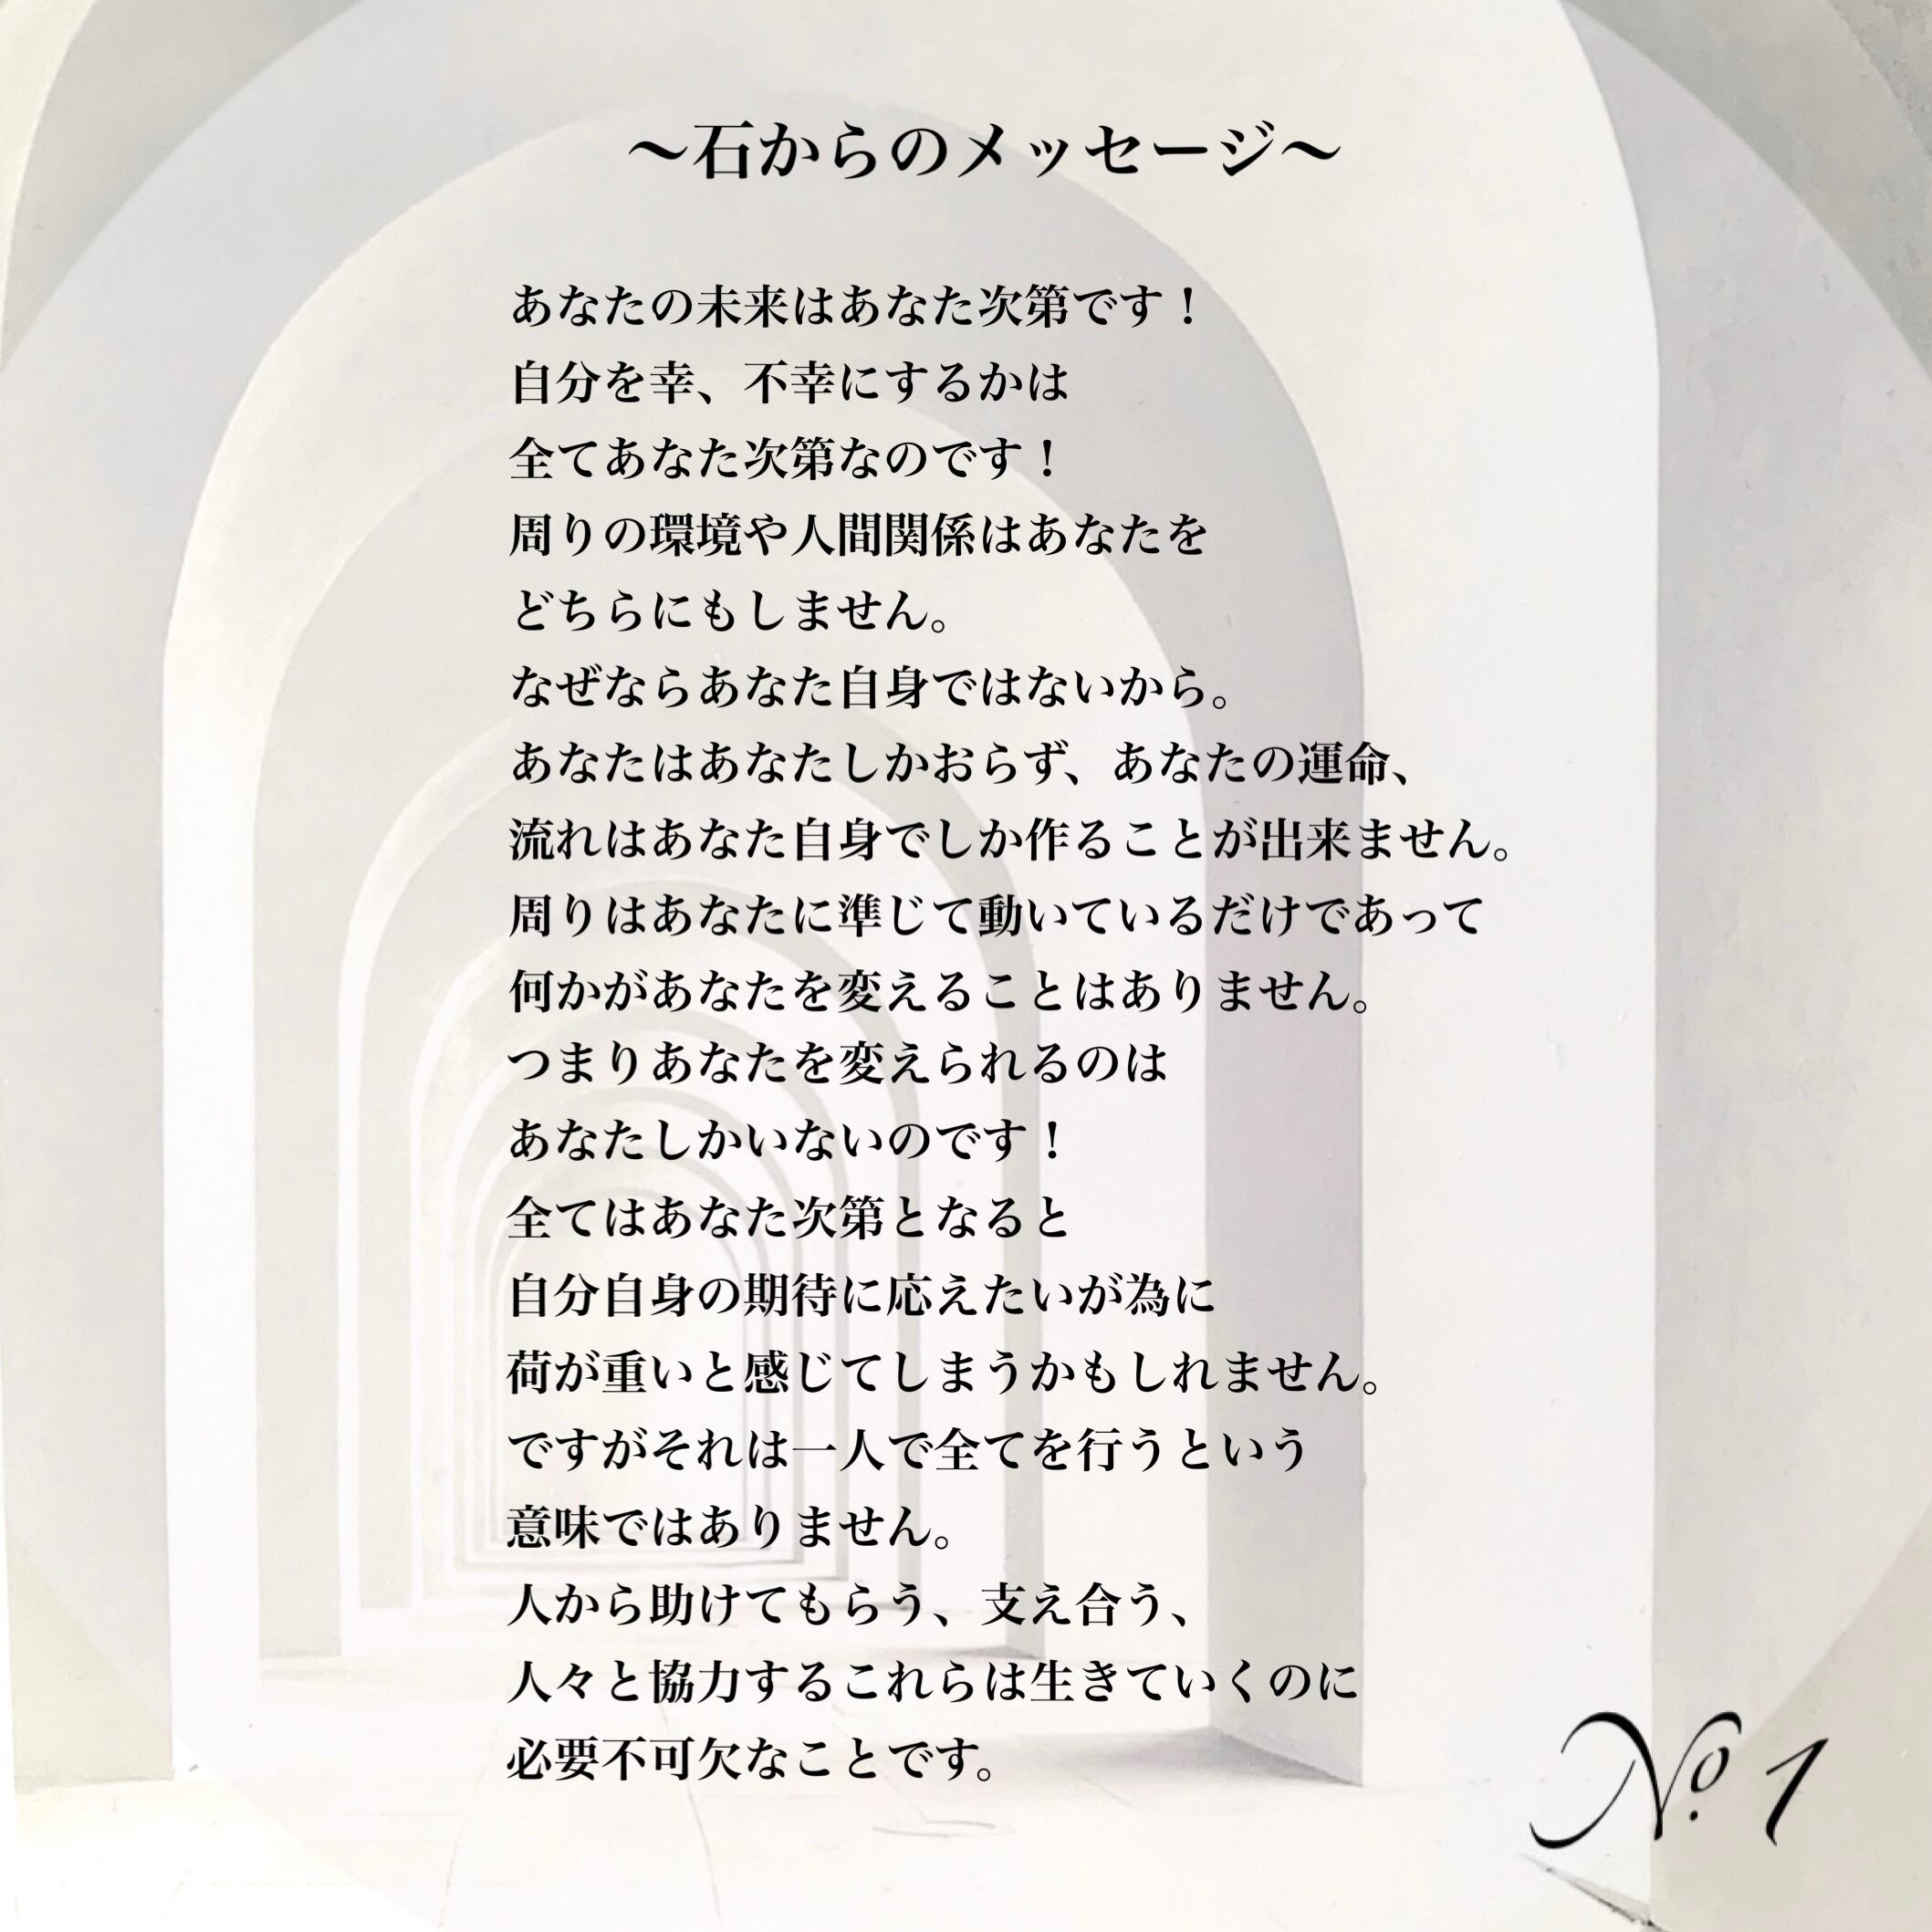 〜石からのメッセージ〜
あなたの未来はあなた次第です！
自分を幸、不幸にするかは
全てあなた次第なのです！
周りの環境や人間関係はあなたを
どちらにもしません。
なぜならあなた自身ではないから。
あなたはあなたしかおらず、あなたの運命、
流れはあなた自身でしか作ることが出来ません。
周りはあなたに準じて動いているだけであって
何かがあなたを変えることはありません。
つまりあなたを変えられるのは
あなたしかいないのです！
全てはあなた次第となると
自分自身の期待に応えたいが為に
荷が重いと感じてしまうかもしれません。
ですがそれは一人で全てを行うという
意味ではありません。
人から助けてもらう、支え合う、
人々と協力するこれらは生きていくのに
必要不可欠なことです。
No. 1